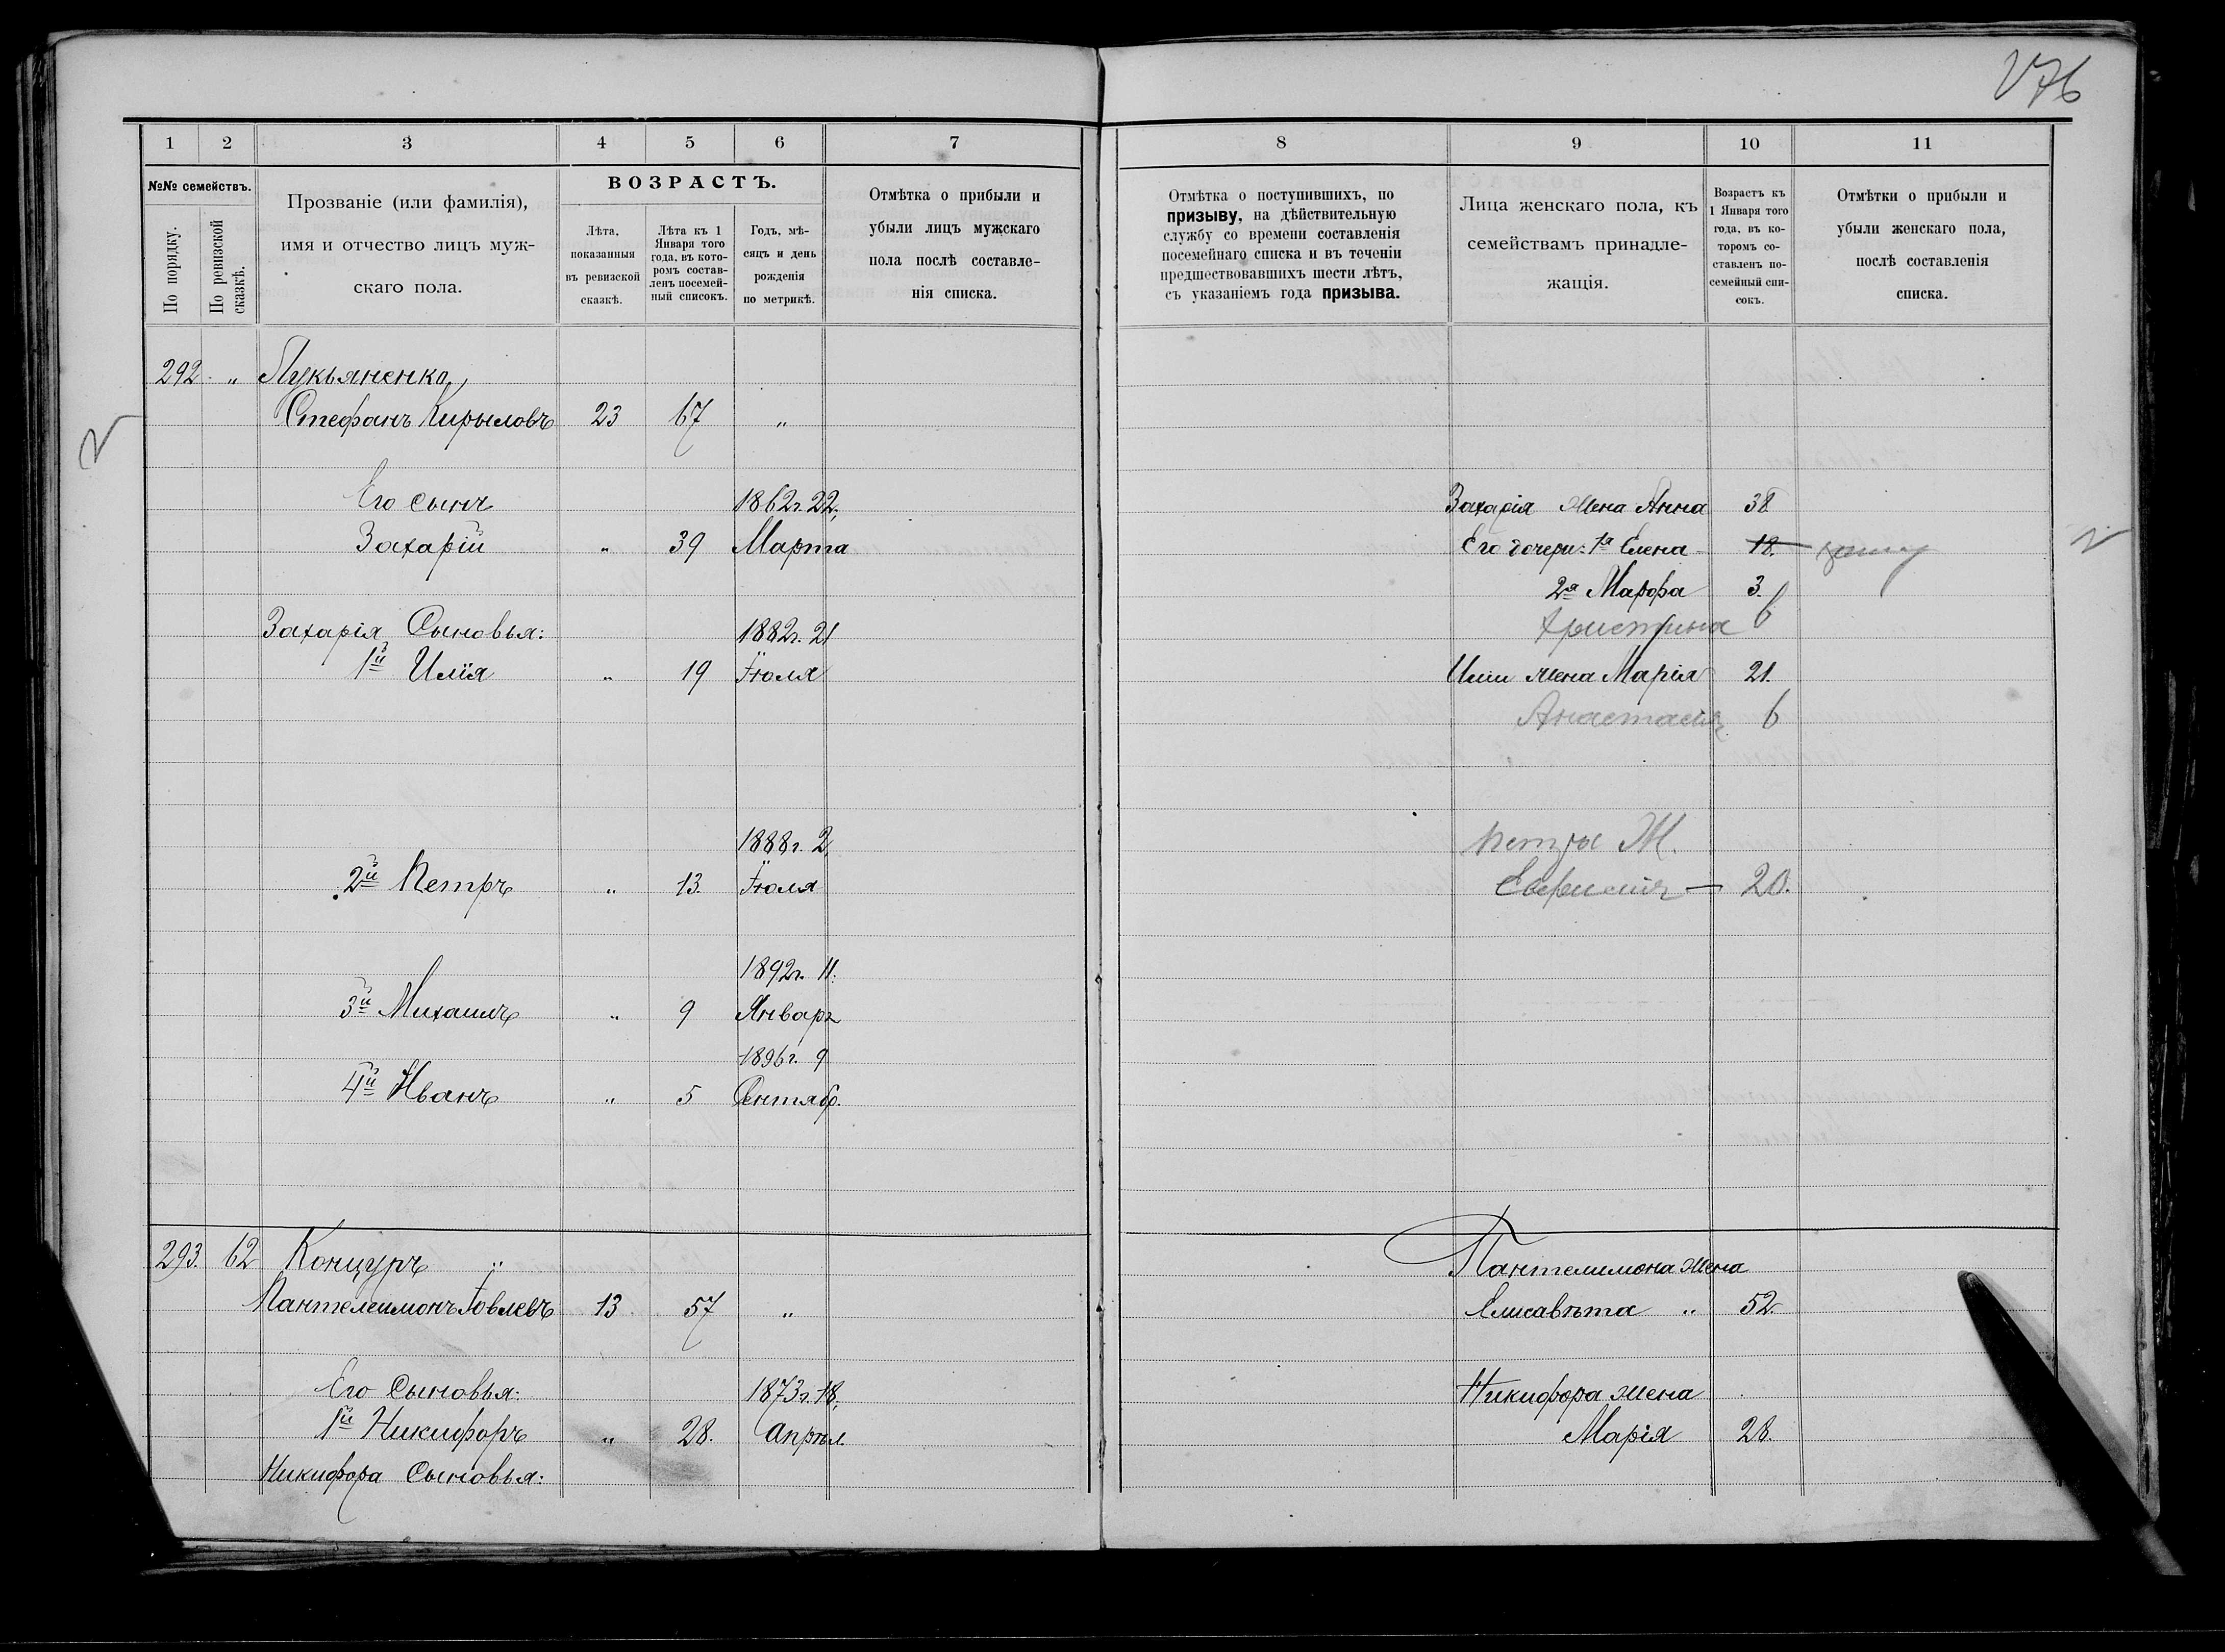 276
1 2 3 4 5 6 7 8 9 10 11
№№ семействъ.
По порядку.
По ревизской сказкѣ.
Прозваніе (или фамилія),
имя и отчество лицъ муж-
скаго пола.
ВОЗРАСТЪ.
Лѣта,
показанныя
въ ревизской
сказкѣ.
Лѣта къ 1
Января того
года, въ кото-
ромъ состав-
ленъ посемей-
ный списокъ.
Годъ, мѣ-
сяцъ и день
рожденія
по метрикѣ.
Отмѣтка о прибыли и
убыли лицъ мужскаго
пола послѣ составле-
нія списка.
Отмѣтка о поступившихъ, по
призыву, на дѣйствительную
службу со времени составленія
посемейнаго списка и въ теченіи
предшествовавшихъ шести лѣтъ,
съ указаніемъ года призыва.
Лица женскаго пола, къ
семействамъ принадле-
жащія.
Возрастъ къ
1 Января того
года, въ ко-
торомъ со-
ставленъ по-
семейный спи-
сокъ.
Отмѣтки о прибыли и
убыли женскаго пола,
послѣ составленія
списка.
292. " Лукьяненко
Стефанъ Кирыловъ 23 67 "
Его сынъ 1862г. 22, Захарія жена Анна 38
Захарій " 39 Марта Его дочери: 1я Елена 18.
2я Марфа 3.
Захарія Сыновья: 1882г. 21 Христина 6
1й Илія " 19 Іюля Иліи жена Марія 21.
Анастасія 6
1888г. 2, Петра Ж.
2й Петръ " 13. Іюля 20.
1892г. 11.
3й Михаилъ " 9 Январ
1896г. 9
4й Иванъ " 5 Сентябр.
293. 62 Концуръ " Пантелимона жена
Пантелеимонъ Іовлевъ 13 57 " Елисавѣта " 52.
Его Сыновья: 1873г. 18, Никифора жена
1й Никифоръ " 28. Апрѣл. Марія 28.
Никифора Сыновья: